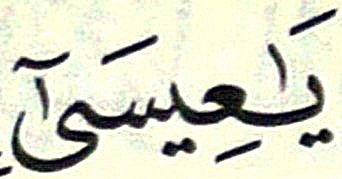 يَٰعِيسَىٰٓ